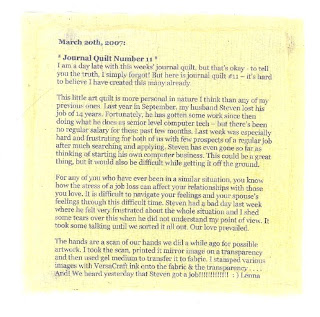 March 20th, 2007:
* Journal Quilt Number 11 *
I am a day late with this weeks' journal quilt, but that's okay - to tell
you the truth, I simply forgot! But here is journal quilt #11 – it's hard
to believe I have created this many already
This little art quilt is more personal in nature I think than any of my
previous ones. Last year in September, my husband Steven lost his
job of 14 years. Fortunately, he has gotten some work since then
doing what he does as senior level computer tech – but there's been
no regular salary for these past few months. Last week was especially
hard and frustrating for both of us with few prospects of a regular job
after much searching and applying. Steven has even gone so far as
thinking of starting his own computer business. This could be a great
thing, but it would also be difficult while getting it off the ground.
For any of you who have ever been in a similar situation, you know
how the stress of a job loss can affect your relationships with those
you love. It is difficult to navigate your feelings and your spouse's
feelings through this difficult time. Steven had a bad day last week
where he felt very frustrated about the whole situation and I shed
some tears over this when he did not understand my point of view. It
took some talking until we sorted it all out. Our love prevailed.
The hands are a scan of our hands we did a while ago for possible
artwork. I took the scan, printed it mirror image on a transparency
and then used gel medium to transfer it to fabric. I stamped various
images with VersaCraft ink onto the fabric & the transparency . . . .
And! We heard yesterday that Steven got a job!!!!!!!!!!!!! : ) Lenna